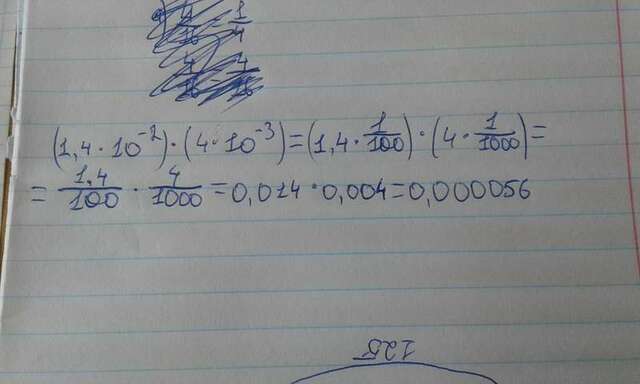 (1,4 · 10⁻²) · (4 · 10⁻³) = (1,4 · 1/100) · (4 · 1/1000) =
= 1,4/100 · 4/1000 = 0,014 · 0,004 = 0,000056
125